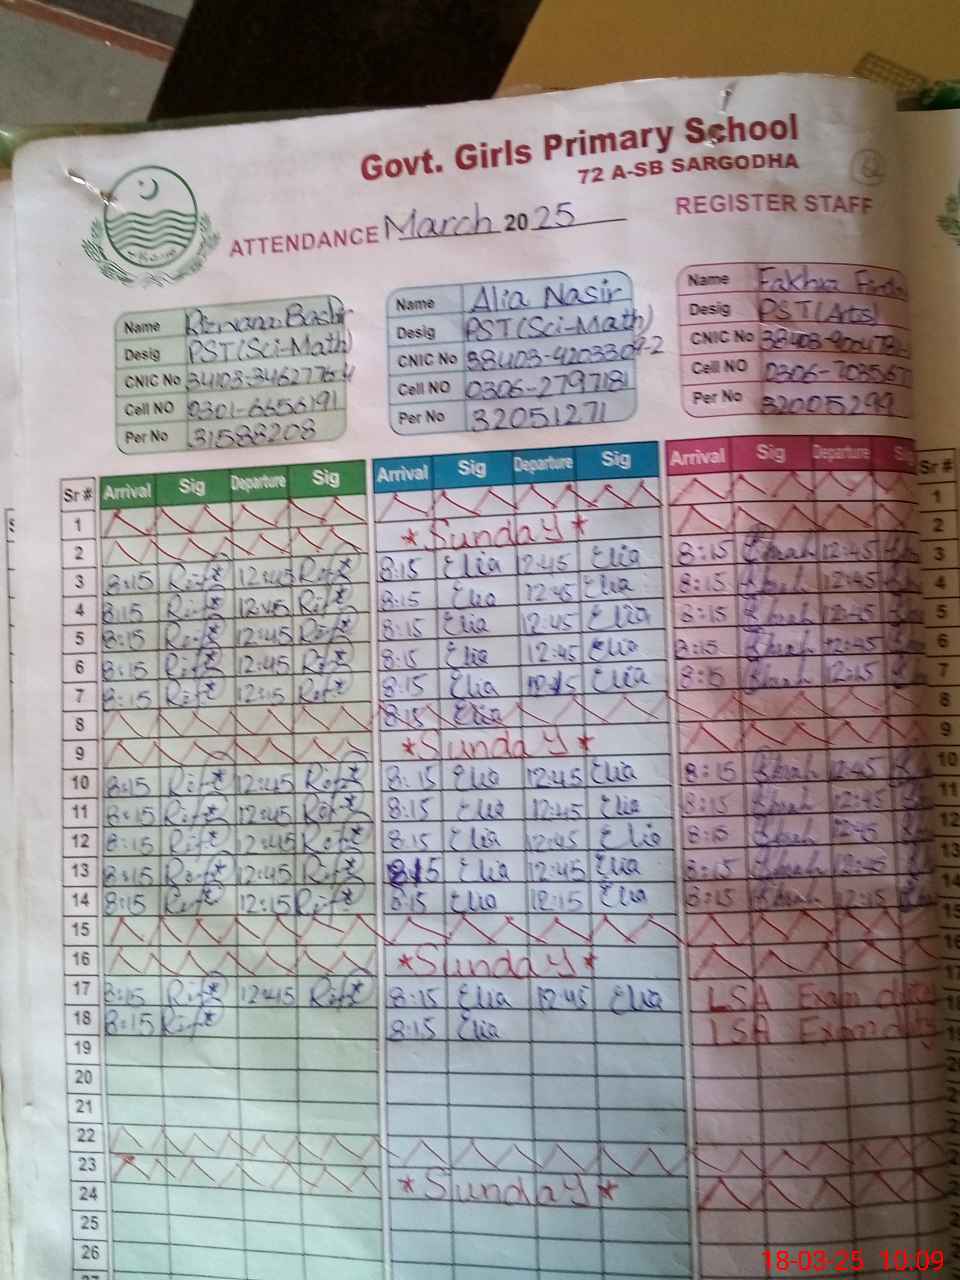 Govt. Girls Primary School
72 A-SB SARGODHA
ATTENDANCE March 2025 REGISTER STAFF
Name Rizwana Bashir
Desig PST(Sci-Math)
CNIC No
Cell NO 0301-6656191
Per No 31588208
Name Alia Nasir
Desig PST(Sci-Math)
CNIC No
Cell NO 0306-2797181
Per No 32051271
Name Fakhra
Desig PST(Arts)
CNIC No
Cell NO
Per No 32005299
Sr # Arrival Sig Departure Sig Arrival Sig Departure Sig Arrival Sig Departure Sr #
1 *Sunday* 1
2 2
3 8:15 12:45 8:15 Elia 12:45 Elia 8:15 12:45 3
4 8:15 12:45 8:15 Elia 12:45 Elia 8:15 12:45 4
5 8:15 12:45 8:15 Elia 12:45 Elia 8:15 12:45 5
6 8:15 12:45 8:15 Elia 12:45 Elia 8:15 12:45 6
7 8:15 12:15 8:15 Elia Elia 8:15 12:15 7
8 8:15 Elia 8
9 *Sunday* 9
10 8:15 12:45 8:15 Elia 12:45 Elia 8:15 12:45 10
11 8:15 12:45 8:15 Elia 12:45 Elia 8:15 12:45 11
12 8:15 12:45 8:15 Elia 12:45 Elia 8:15 12:45 12
13 8:15 12:45 8:15 Elia 12:45 Elia 8:15 12:45 13
14 8:15 12:15 8:15 Elia 12:15 Elia 8:15 12:15 14
15 15
16 *Sunday* 16
17 8:15 12:45 8:15 Elia 12:45 Elia LSA Exam duty 17
18 8:15 8:15 Elia LSA Exam duty 18
19
20
21
22
23 *Sunday*
24
25
26
18-03-25 10:09